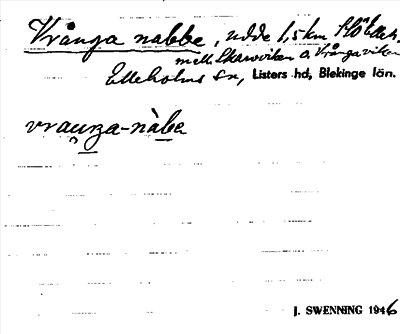 Vrånga nabbe, udde 1,5 km SO Edeh.
mell. Skarviken o. Vrånga viken
Elleholms sn, Listers hd, Blekinge län.
vraŋga-nàbe
J. SWENNING 1946